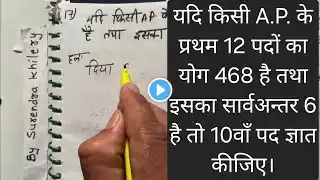 यदि किसी A.P. के
है तथा इसका
हल
दिया
By Surendra Khilery
यदि किसी A.P. के
प्रथम 12 पदों का
योग 468 है तथा
इसका सार्वअन्तर 6
है तो 10वाँ पद ज्ञात
कीजिए।